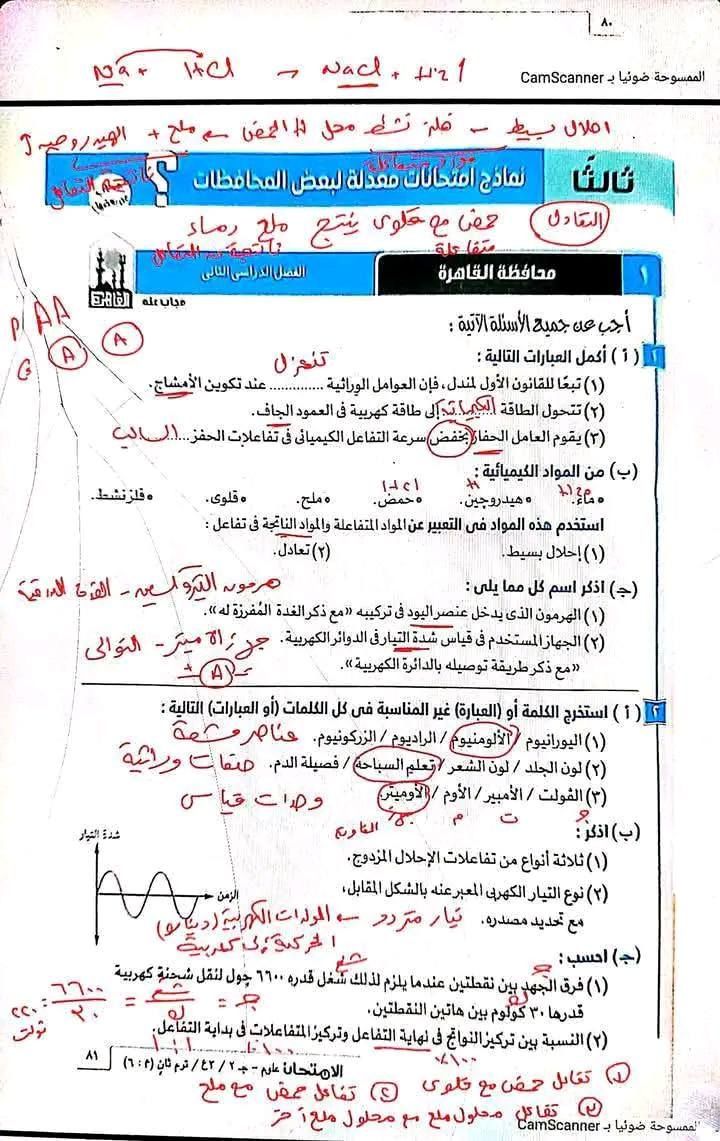 ٨٠
Na + HCl → NaCl + H2↑
الممسوحة ضوئيا بـ CamScanner
احلال بسيط ← فلز نشط محل H الحمض ← ملح + الهيدروجين
ثالثًا
نماذج امتحانات معدلة لبعض المحافظات
التعادل
حمض مع قلوى ينتج ملح وماء
متفاعلة
١
محافظة القاهرة
الفصل الدراسى الثانى
القاهرة
مجاب عنه
أجب عن جميع الأسئلة الآتية :
P AA
G A A
١ ( أ ) أكمل العبارات التالية :
تنعزل
(١) تبعًا للقانون الأول لمندل، فإن العوامل الوراثية ............. عند تكوين الأمشاج.
(٢) تتحول الطاقة الكيميائية إلى طاقة كهربية فى العمود الجاف.
(٣) يقوم العامل الحفاز بخفض سرعة التفاعل الكيميائى فى تفاعلات الحفز..... السالب
(ب) من المواد الكيميائية :
• ماء. • هيدروجين. • حمض. • ملح. • قلوى. • فلز نشط.
استخدم هذه المواد فى التعبير عن المواد المتفاعلة والمواد الناتجة فى تفاعل :
(١) إحلال بسيط. (٢) تعادل.
(جـ) اذكر اسم كل مما يلى :
هرمون الثيروكسين - الغدة الدرقية
(١) الهرمون الذى يدخل عنصر اليود فى تركيبه «مع ذكر الغدة المُفرزة له».
(٢) الجهاز المستخدم فى قياس شدة التيار فى الدوائر الكهربية.
جهاز الاميتر - التوالى
«مع ذكر طريقة توصيله بالدائرة الكهربية».
+ A -
٢ ( أ ) استخرج الكلمة أو (العبارة) غير المناسبة فى كل الكلمات (أو العبارات) التالية :
(١) اليورانيوم / الألومنيوم / الراديوم / الزركونيوم. عناصر مشعة
(٢) لون الجلد / لون الشعر / تعلم السباحة / فصيلة الدم. صفات وراثية
(٣) الڤولت / الأمبير / الأوم / الأوميتر. وحدات قياس
جـ ت م المقاومة
(ب) اذكر :
(١) ثلاثة أنواع من تفاعلات الإحلال المزدوج.
(٢) نوع التيار الكهربى المعبر عنه بالشكل المقابل،
مع تحديد مصدره.
شدة التيار
الزمن
تيار متردد ← المولدات الكهربية (دينامو)
الحركية إلى كهربية
(جـ) احسب :
جـ شغ
(١) فرق الجهد بين نقطتين عندما يلزم لذلك شغل قدره ٦٦٠٠ چول لنقل شحنة كهربية
قدرها ٣٠ كولوم بين هاتين النقطتين.
جـ = شغ / ك = ٦٦٠٠ / ٣٠ = ٢٢٠ ڤولت
(٢) النسبة بين تركيز النواتج فى نهاية التفاعل وتركيز المتفاعلات فى بداية التفاعل.
٪١٠٠ ٪١٠٠ ١ : ١
الامتحان علوم - جـ ٢ / ٣ع / ترم ثان (م : ٦)
٨١
(١) تفاعل حمض مع قلوى (٢) تفاعل حمض مع ملح
(٣) تفاعل محلول ملح مع محلول ملح آخر
الممسوحة ضوئيا بـ CamScanner